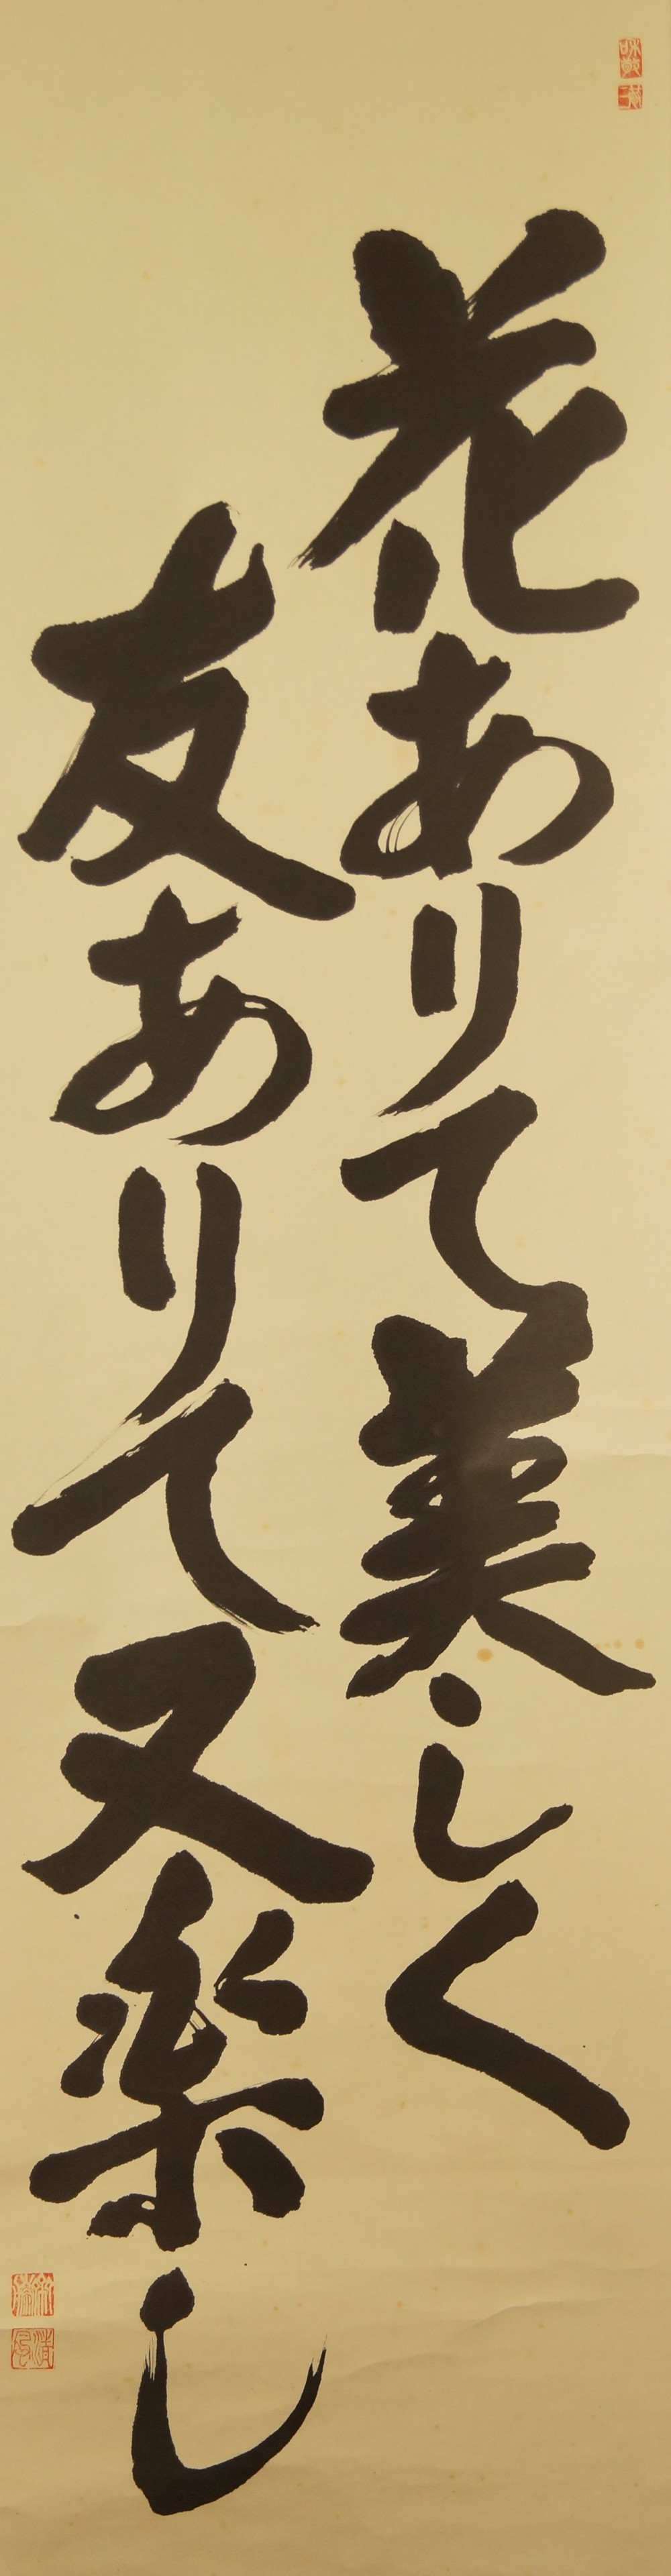 花ありて美しく
友ありて又楽し